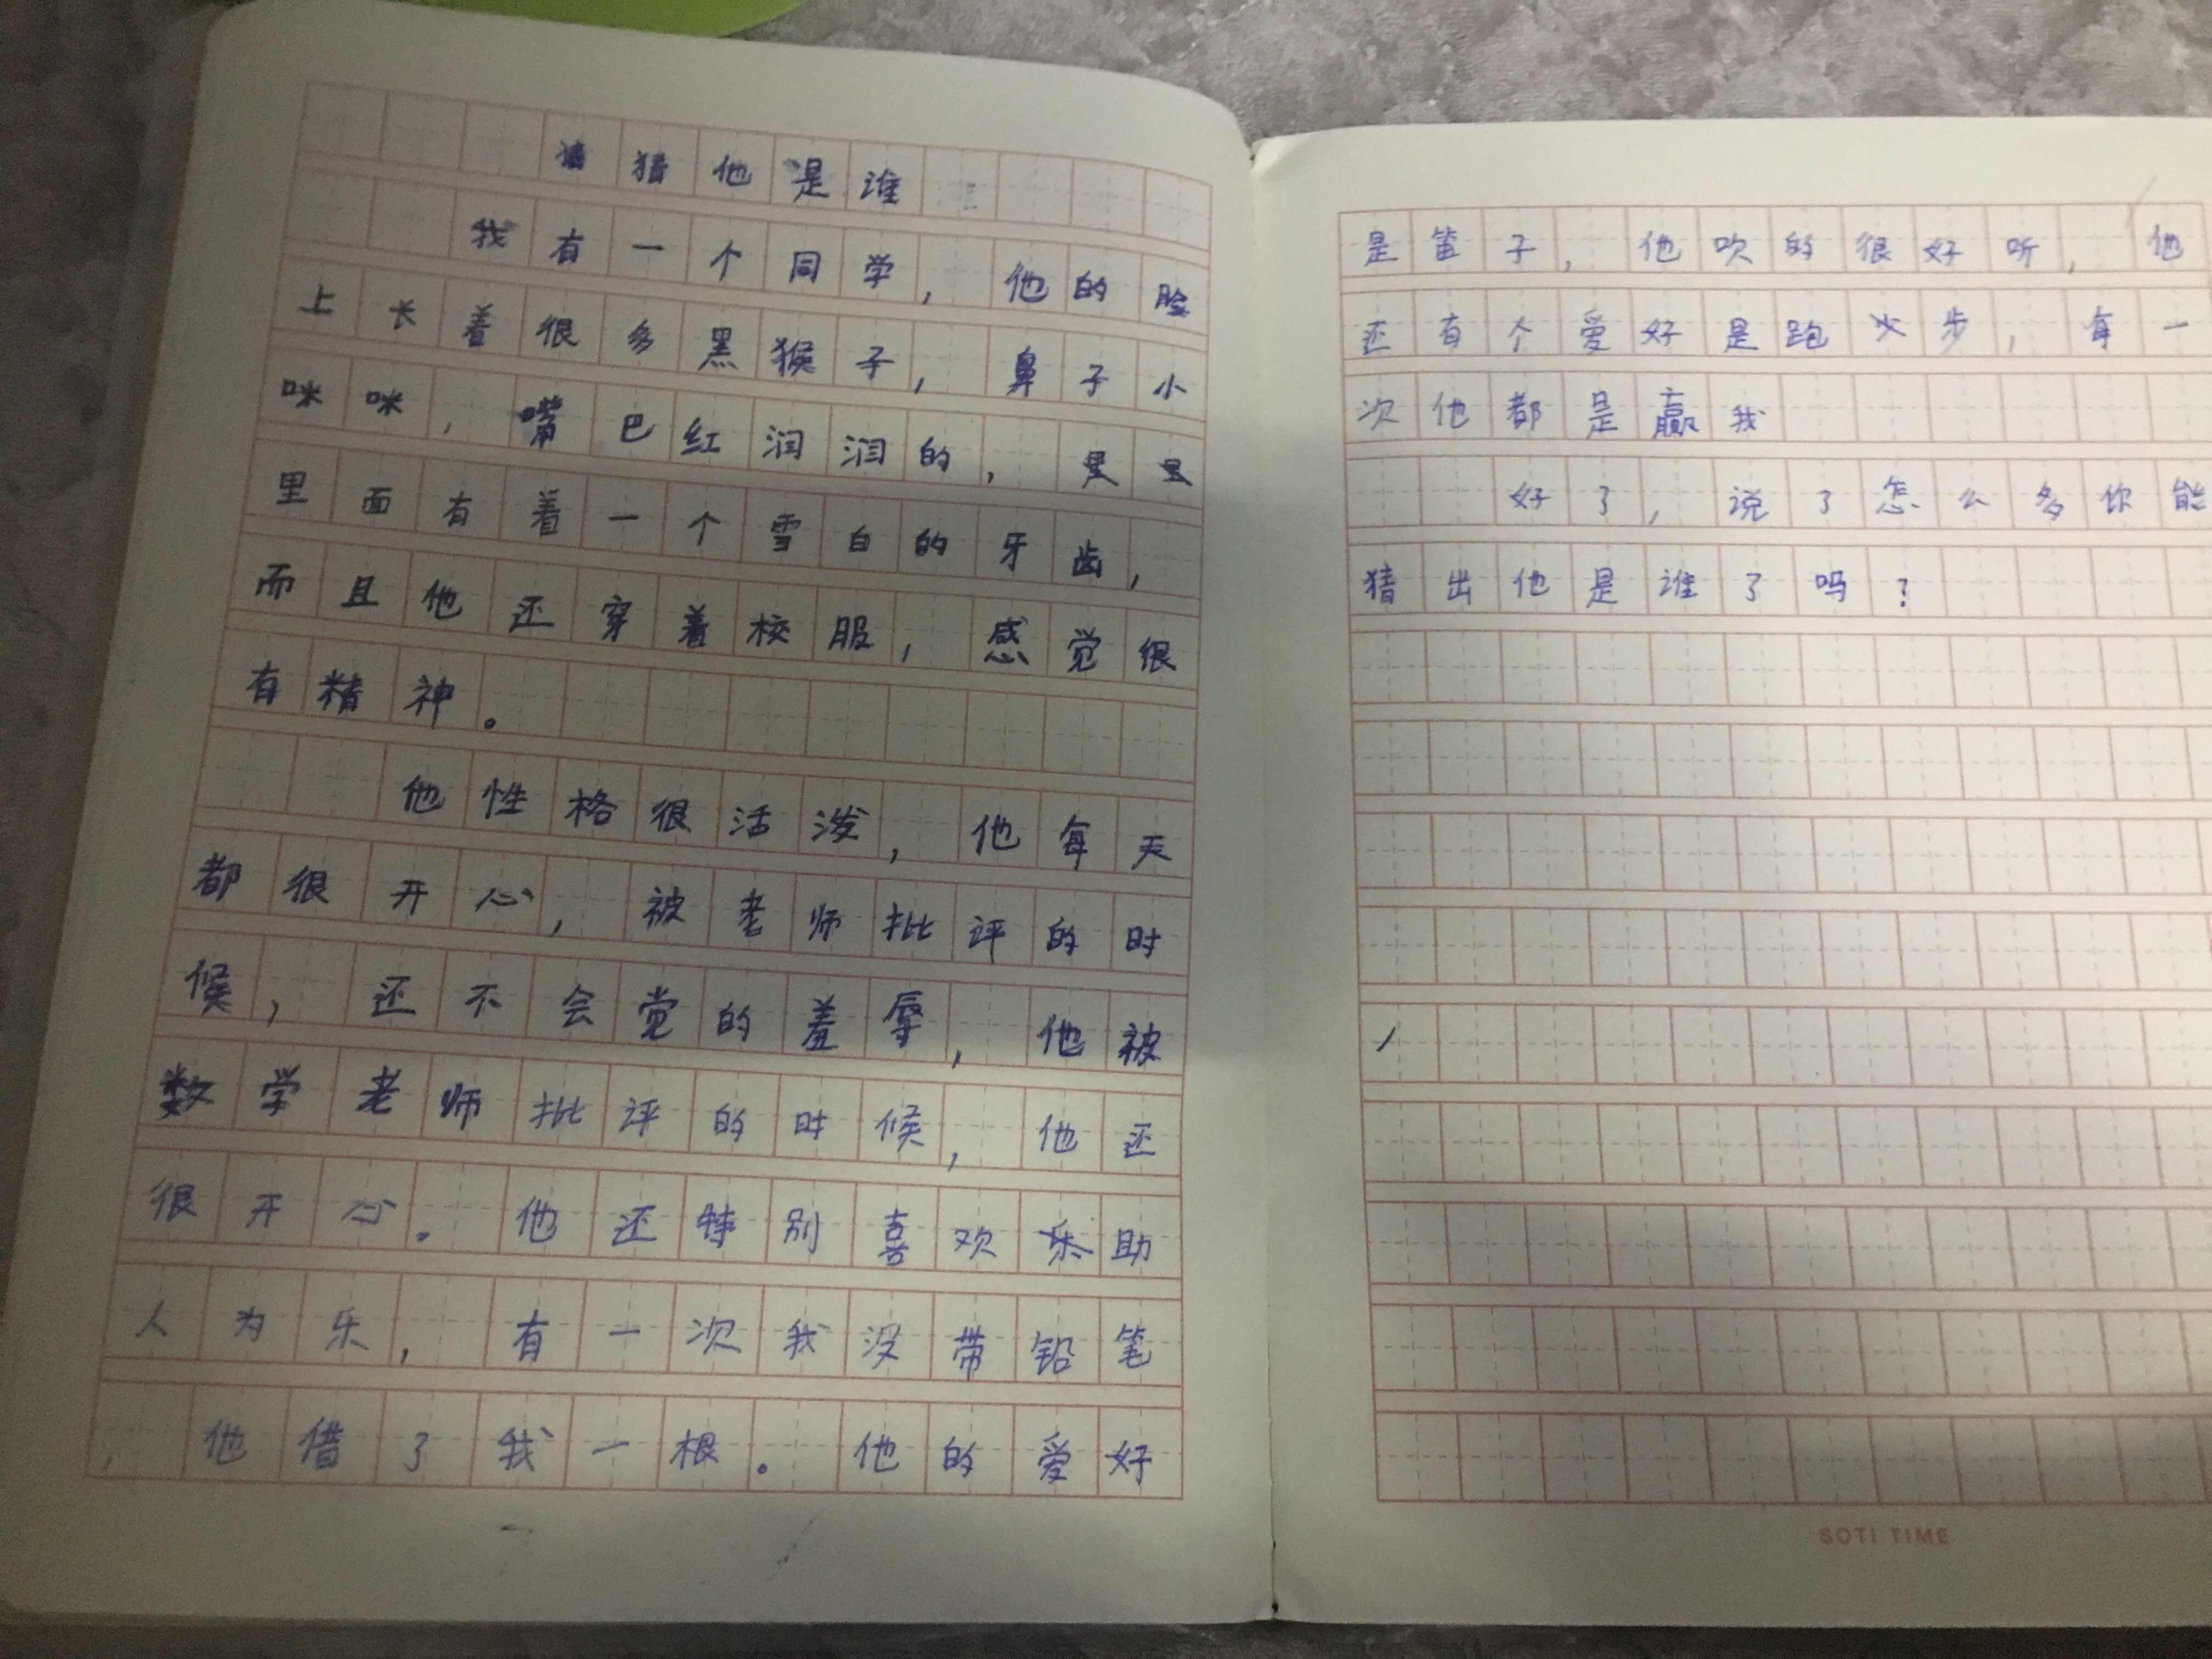 猜他是谁
我有一个同学，他的脸
上长着很多黑猴子，鼻子小
咪咪，嘴巴红润润的，
里面有着一个雪白的牙齿，
而且他还穿着校服，感觉很
有精神。
他性格很活泼，他每天
都很开心，被老师批评的时
候，还不会觉的羞辱，他被
数学老师批评的时候，他还
很开心。他还特别喜欢助
人为乐，有一次我没带铅笔
，他借了我一根。他的爱好
是笛子，他吹的很好听，他
还有个爱好是跑步，每一
次他都是赢我
好了，说了怎么多你能
猜出他是谁了吗？
SOTI TIME